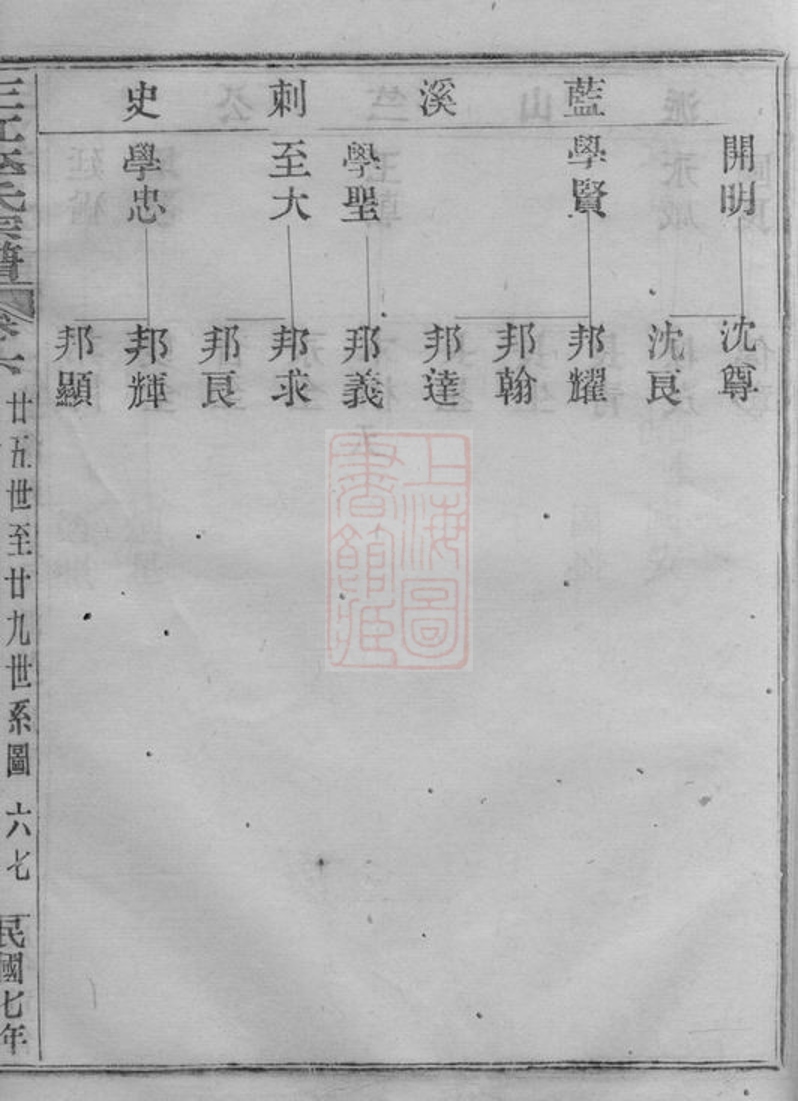 藍溪刺史
開明
學賢
學聖
至大
學忠
沈尊
沈良
邦耀
邦翰
邦達
邦義
邦求
邦良
邦輝
邦顯
氏宗譜
卷六
廿五世至廿九世系圖
六七
民國七年
上海圖書館藏